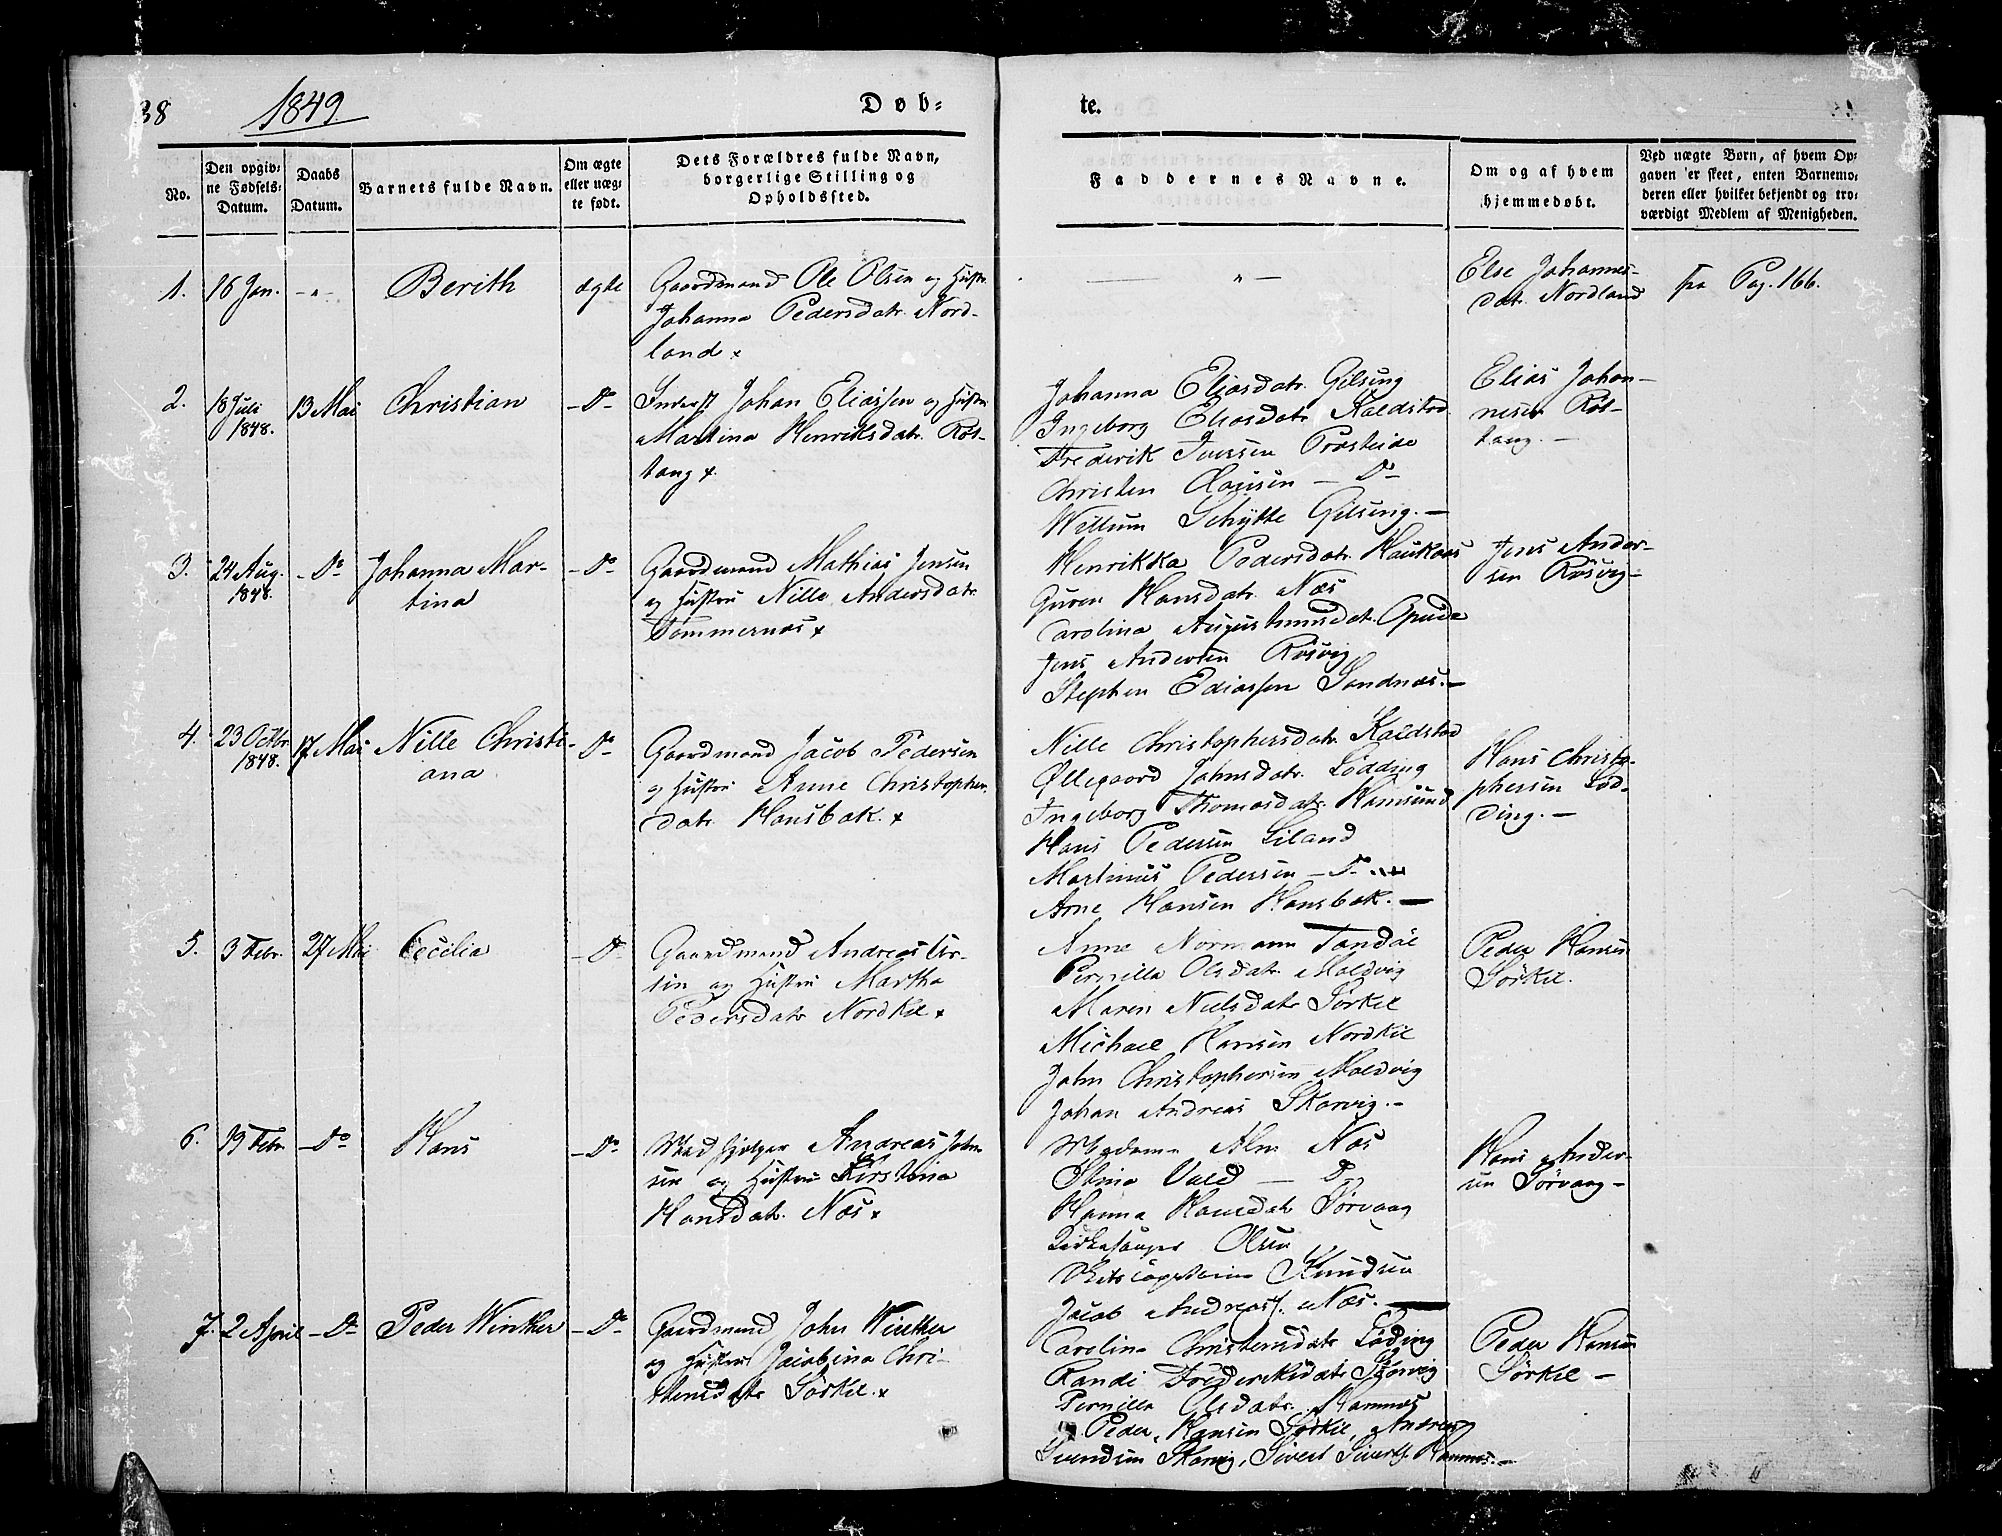 38
1849.
Døb=
te.
No.
Den opgiv=
ne Fødsels=
Datum.
Daabs
Datum.
Barnets fulde Navn.
Om ægte
eller uæg=
te født.
Dets Forældres fulde Navn,
borgerlige Stilling og
Opholdssted.
Faddernes Navne.
Om og af hvem
hjemmedøbt.
Ved uægte Børn, af hvem Op=
gaven er skeet, enten Barnemo=
deren eller hvilket bekjendt og tro=
værdigt Medlem af Menigheden.
1.
16 Jan.
- " -
Berith
ægte
Gaardmand Ole Olsen og Hustr.
Johanna Pedersdatr. Nord-
land x
— " —
Else Johannes-
datr. Nordland
fra Pag. 166.
2.
18 Juli
1848.
13 Mai
Christian
- Do -
Inderst Johan Eliassen og Hustru
Martina Henriksdatr. Røs-
tang x.
Johanna Eliasdatr. Gilsing
Ingeborg Eliasdatr. Kaldstad
Frederik Iversen Prosteide
Christen Clausen — Do
Willum Schytte Gilsing. —
Elias Johan-
nesen Røs-
tang. —
3.
24 Aug.
1848.
- Do
Johanna Mar-
tina
- Do -
Gaardmand Mathias Jensen
og Hustru Nille Andersdatr.
Tømmernæs x
Henrikka Pedersdatr. Haukaas
Guren Hansdatr. Næs
Carolina Augustinusdatr. Opeide
Jens Andersen Røsvig
Stephen Ediassen Sandnæs. —
Jens Ander-
sen Røsvig -
4.
23 Octbr
1848.
17 Mai
Nille Christi-
ana
Do
Gaardmand Jacob Pedersen
og Hustru Anne Christophers
datr. Hansbak. x
Nille Christophersdatr. Kaldstad
Øllegaard Johnsdatr. Lødding
Ingeborg Thomasdatr. Hamsund
Hans Pedersen Liland
Martinus Pedersen - Do
Arne Hansen Hansbak. —
Hans Christo-
phersen Lød-
ding. —
5.
3 Febr.
27 Mai
Cecilia
- Do
Gaardmand Andreas Lar-
sen og Hustru Martha
Pedersdatr Nordkil x
Anne Normann Tandøe
Pernilla Olsdatr. Maldvig
Maren Nielsdatr Sørkil
Michael Hansen Nordkil
John Christophersen Maldvig
Johan Andreas Skarvig. -
Peder Hansen
Sørkil.
6.
19 Febr
- Do
Hans
- Do
Andreas John
sen og Hustru Kirstina
Hansdatr. Næs x
Madame Alm Næs
Stina Vald — Do
Hanna Hansdatr Sørvaag
Kirkesanger Olsen
Knudsen
Jacob Andreass. Næs. —
Hans Ander-
sen Sørvaag -
7.
2 April
- Do
Peder Winther
- Do -
Gaardmand John Winther
og Hustru Jacobina Chri-
stensdatr Sørkil. x
Carolina Christensdatr Løding
Randi Frederiksdatr. Skarvig
Pernilla Olsdatr. Hamnæs
Peder Hansen Sørkil, Andreas
Svendsen Skarvig, Sivert Siverts. Hamnæs. —
Peder Hansen
Sørkil —